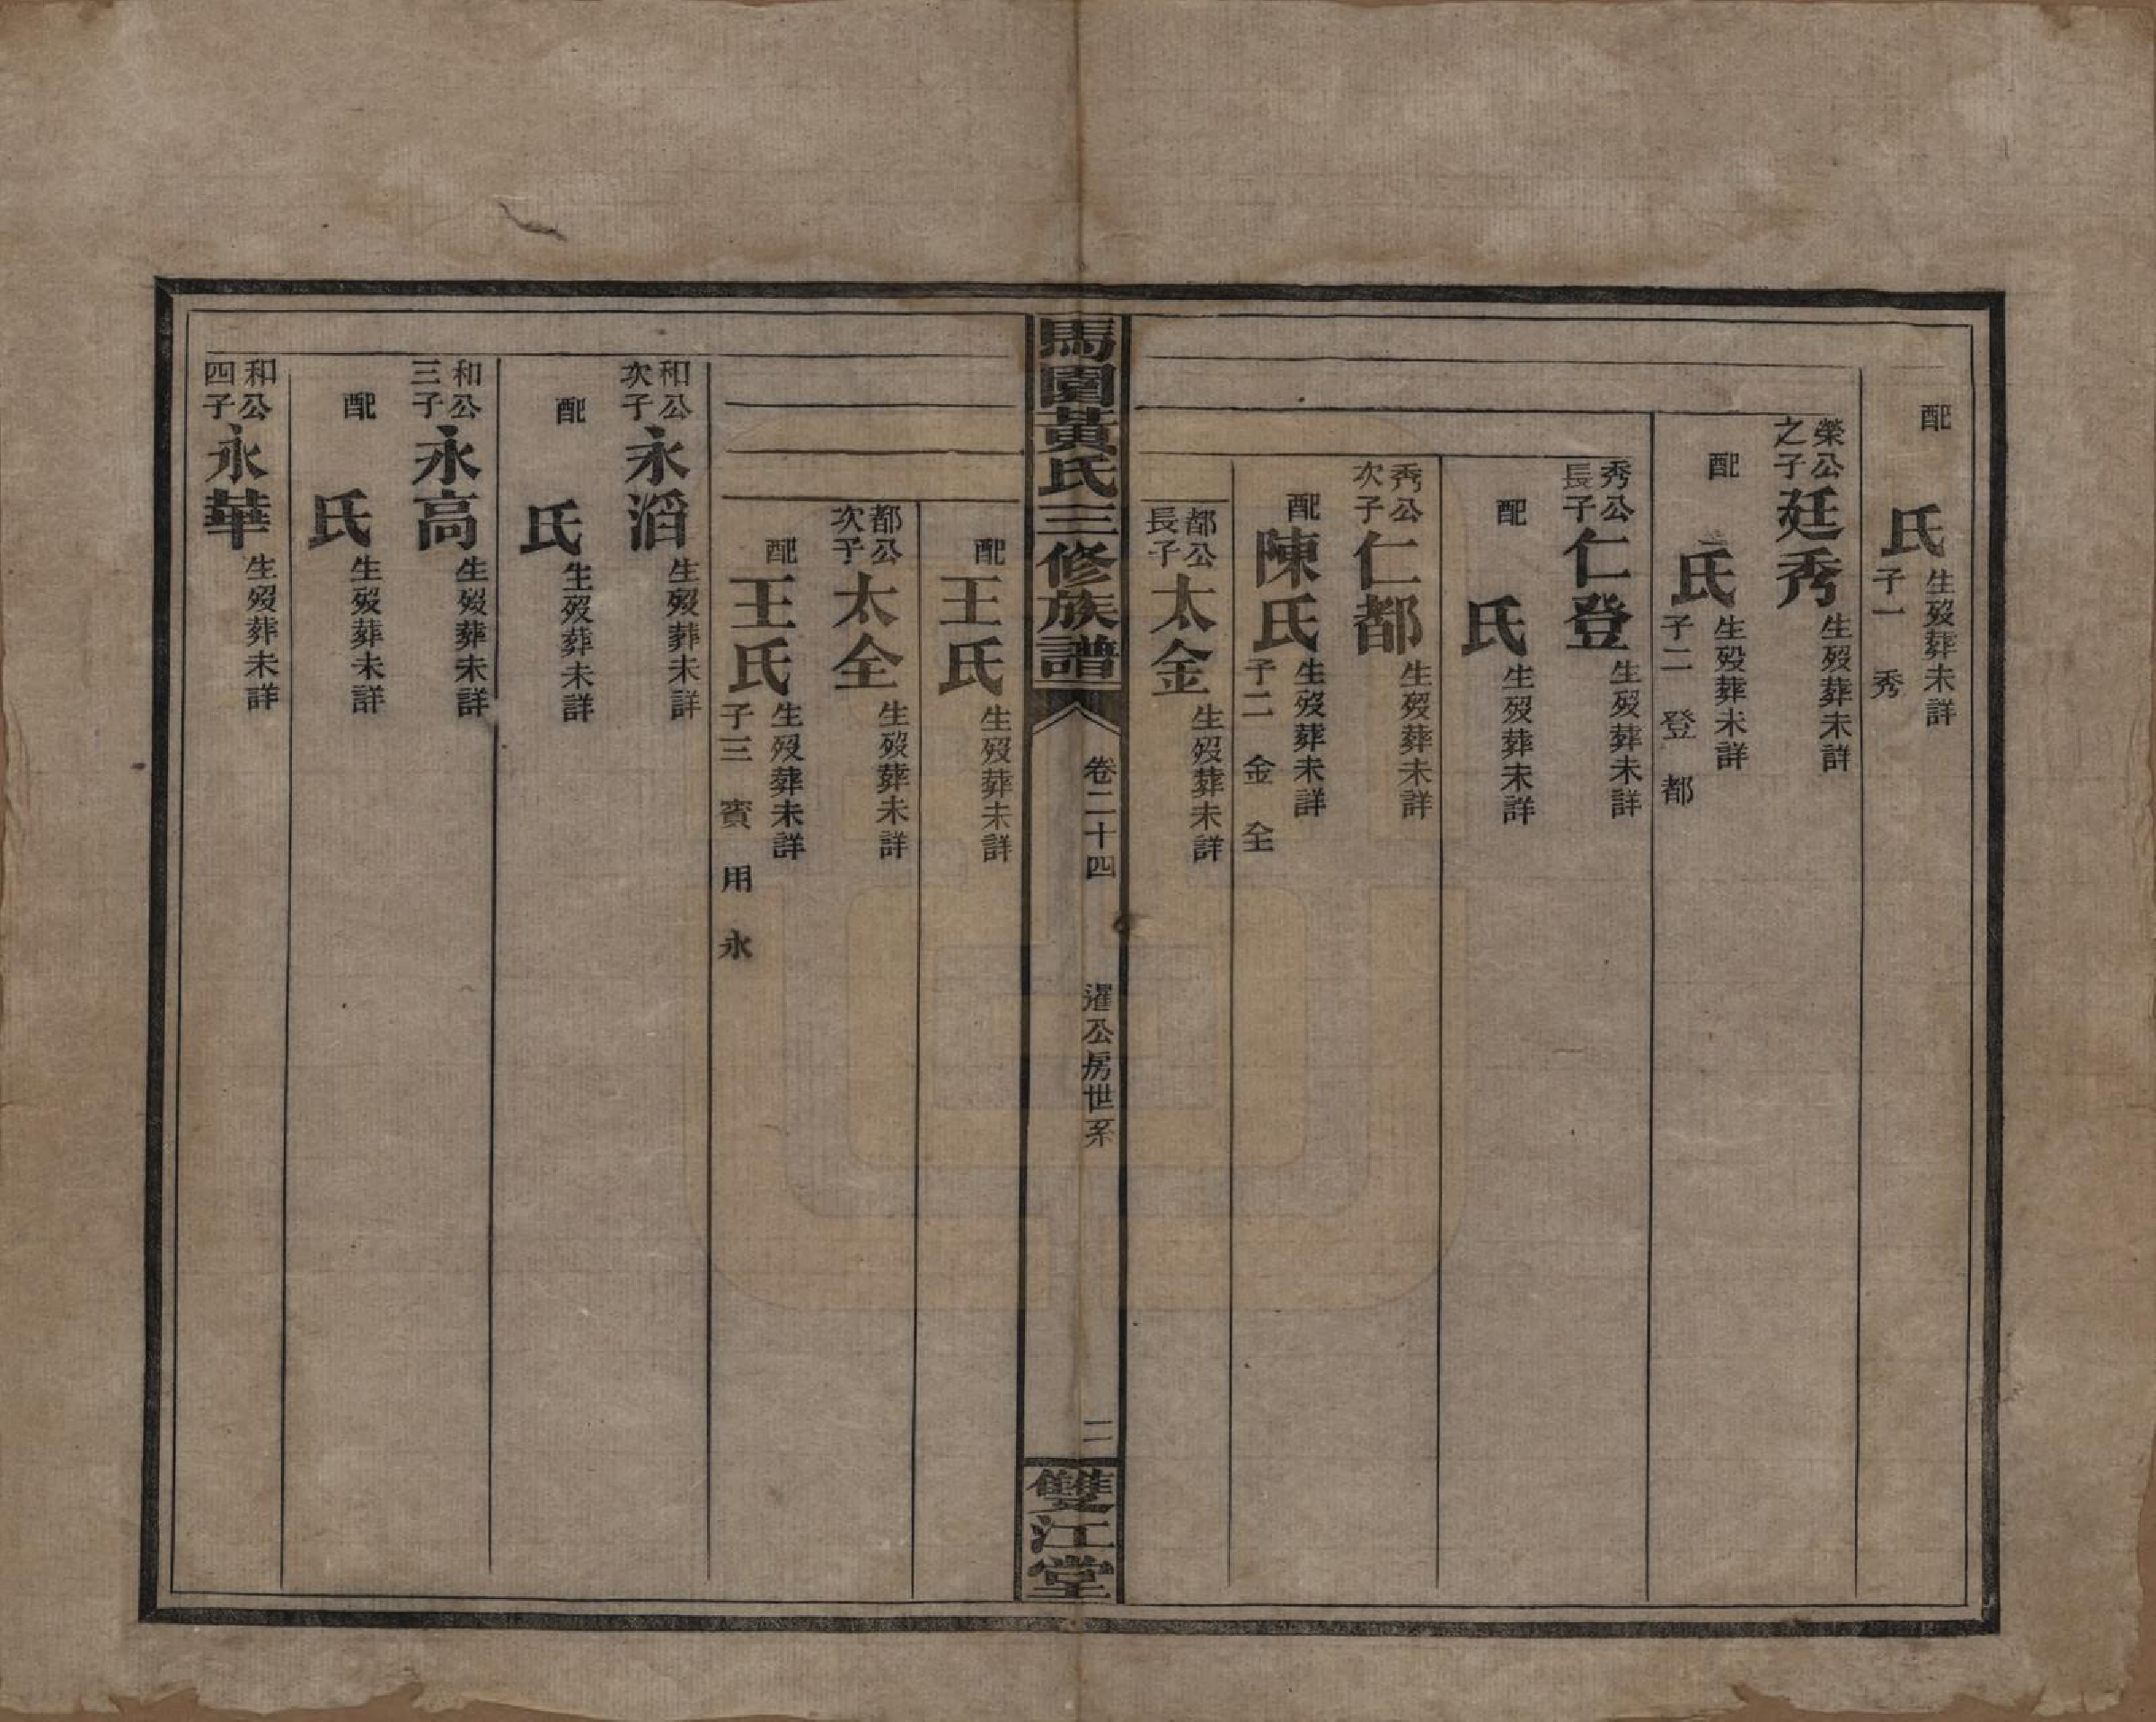 配　氏 生歿葬未詳
子一 秀
榮公之子 廷秀 生歿葬未詳
配　氏 生歿葬未詳
子二 登 都
秀公長子 仁登 生歿葬未詳
配　氏 生歿葬未詳
秀公次子 仁都 生歿葬未詳
配 陳氏 生歿葬未詳
子二 金 全
都公長子 太金 生歿葬未詳
馬園黃氏三修族譜 卷二十四 暹公房世系 二 雙江堂
配 王氏 生歿葬未詳
都公次子 太全 生歿葬未詳
配 王氏 生歿葬未詳
子三 賓 用 永
和公次子 永滔 生歿葬未詳
配　氏 生歿葬未詳
和公三子 永高 生歿葬未詳
配　氏 生歿葬未詳
和公四子 永華 生歿葬未詳